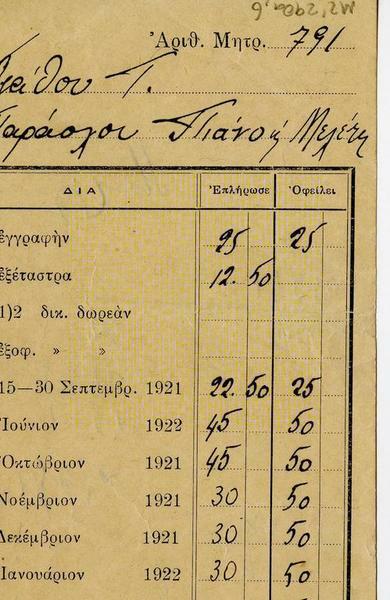 Ἀριθ. Μητρ. 791
Τ.
Πιάνο ἢ Μελέτη
ΔΙΑ Ἐπλήρωσε Ὀφείλει
ἐγγραφὴν 25 25
ἐξέταστρα 12. 50
1)2 δικ. δωρεὰν
ἐξοφ. » »
15—30 Σεπτεμβρ. 1921 22. 50 25
Ἰούνιον 1922 45 50
Ὀκτώβριον 1921 45 50
Νοέμβριον 1921 30 50
Δεκέμβριον 1921 30 50
Ἰανουάριον 1922 30 50